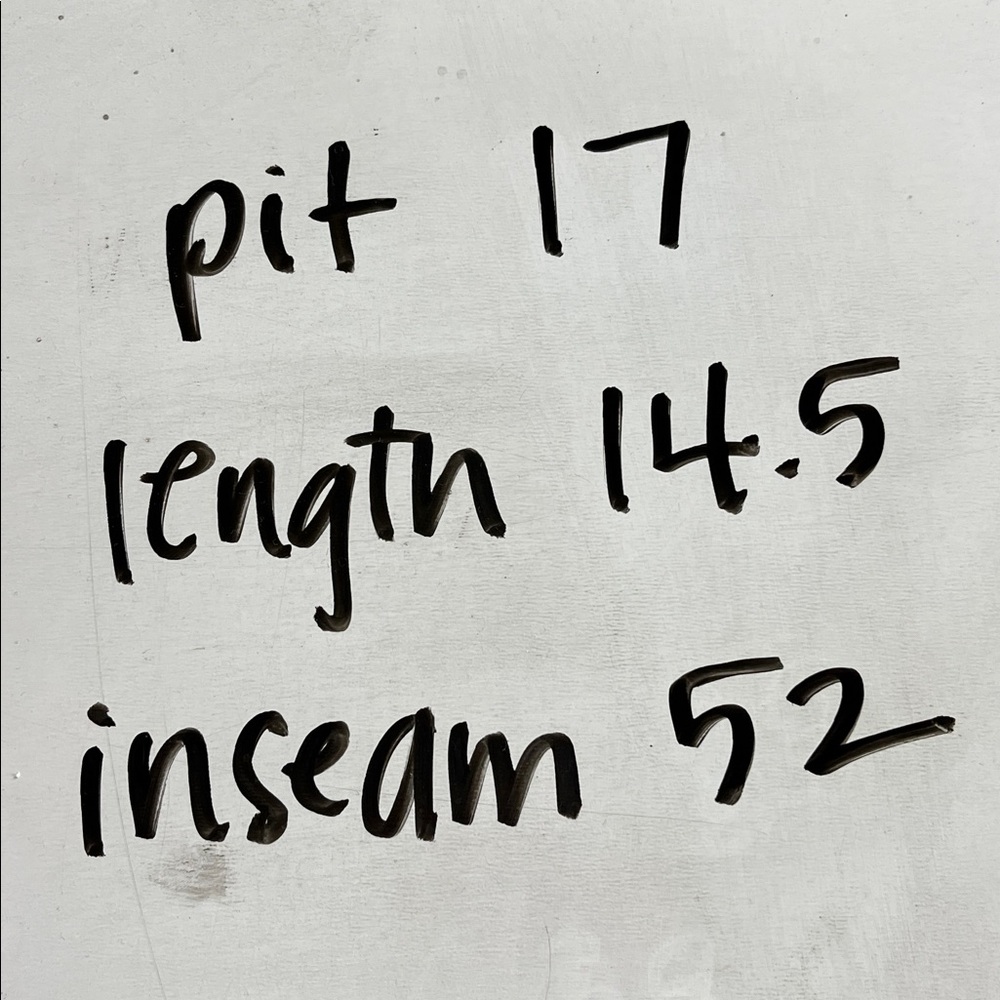 pit 17
length 14.5
inseam 52